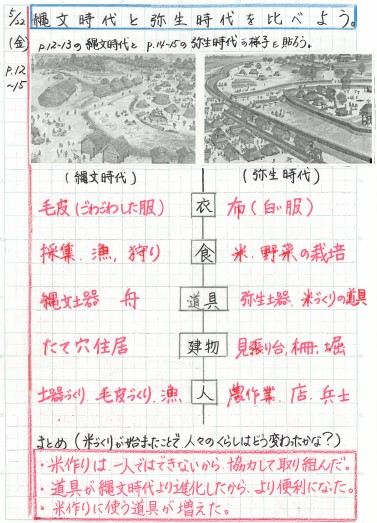 5/22 縄文時代と弥生時代を比べよう。
(金) p.12-13の縄文時代と p.14-15の弥生時代の様子を貼ろう。
p.12
~15
(縄文時代) (弥生時代)
毛皮(ごわごわした服) 衣 布(白い服)
採集、漁、狩り 食 米、野菜の栽培
縄文土器 舟 道具 弥生土器、米づくりの道具
たて穴住居 建物 見張り台、柵、堀
土器づくり、毛皮づくり、漁 人 農作業、店、兵士
まとめ(米づくりが始まったことで人々のくらしはどう変わったかな?)
・米作りは一人ではできないから、協力して取り組んだ。
・道具が縄文時代より進化したから、より便利になった。
・米作りに使う道具が増えた。